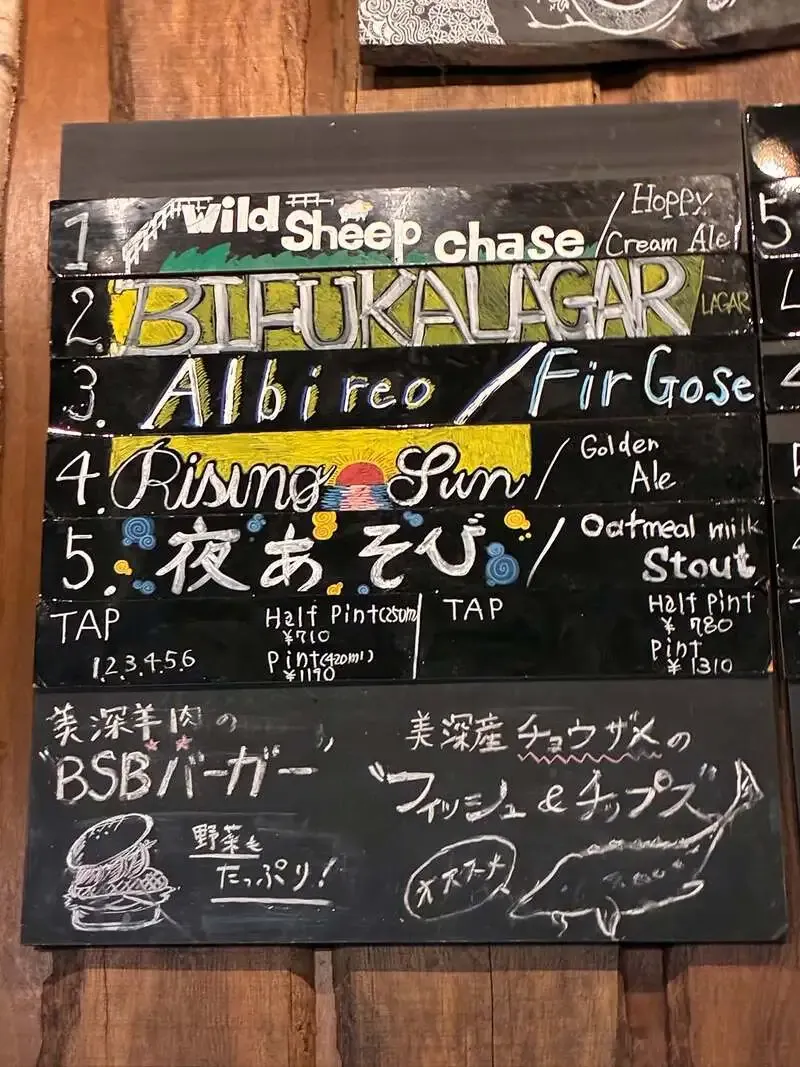 1 Wild Sheep chase / Hoppy Cream Ale
2. BIFUKALAGAR LAGAR
3. Albireo / Fir Gose
4. Rising Sun / Golden Ale
5. 夜あそび / Oatmeal milk Stout
TAP
1.2.3.4.5.6
Half Pint(250ml
¥710
Pint(420ml)
¥1190
TAP
Half Pint
¥ 780
Pint
¥ 1310
美深羊肉の
"BSBバーガー"
野菜も
たっぷり!
美深産チョウザメの
"フィッシュ&チップス"
オススメ
5